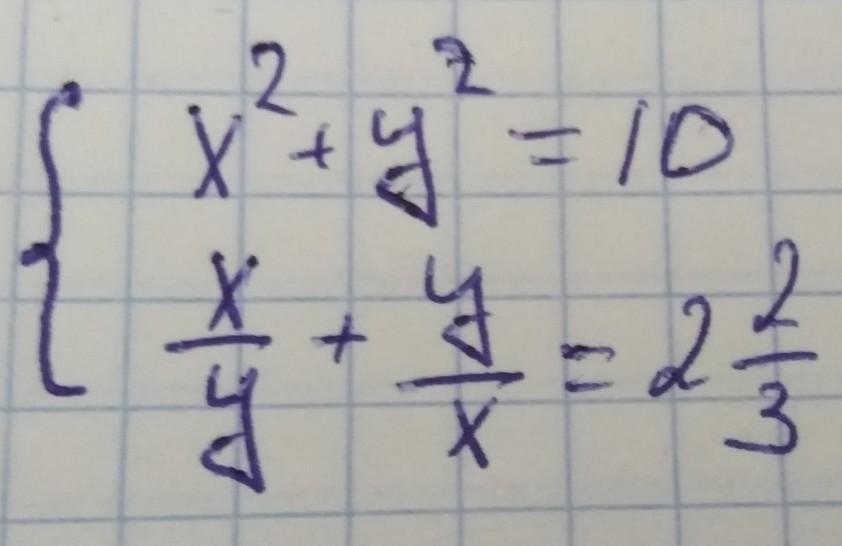 x² + y² = 10
x/y + y/x = 2 2/3